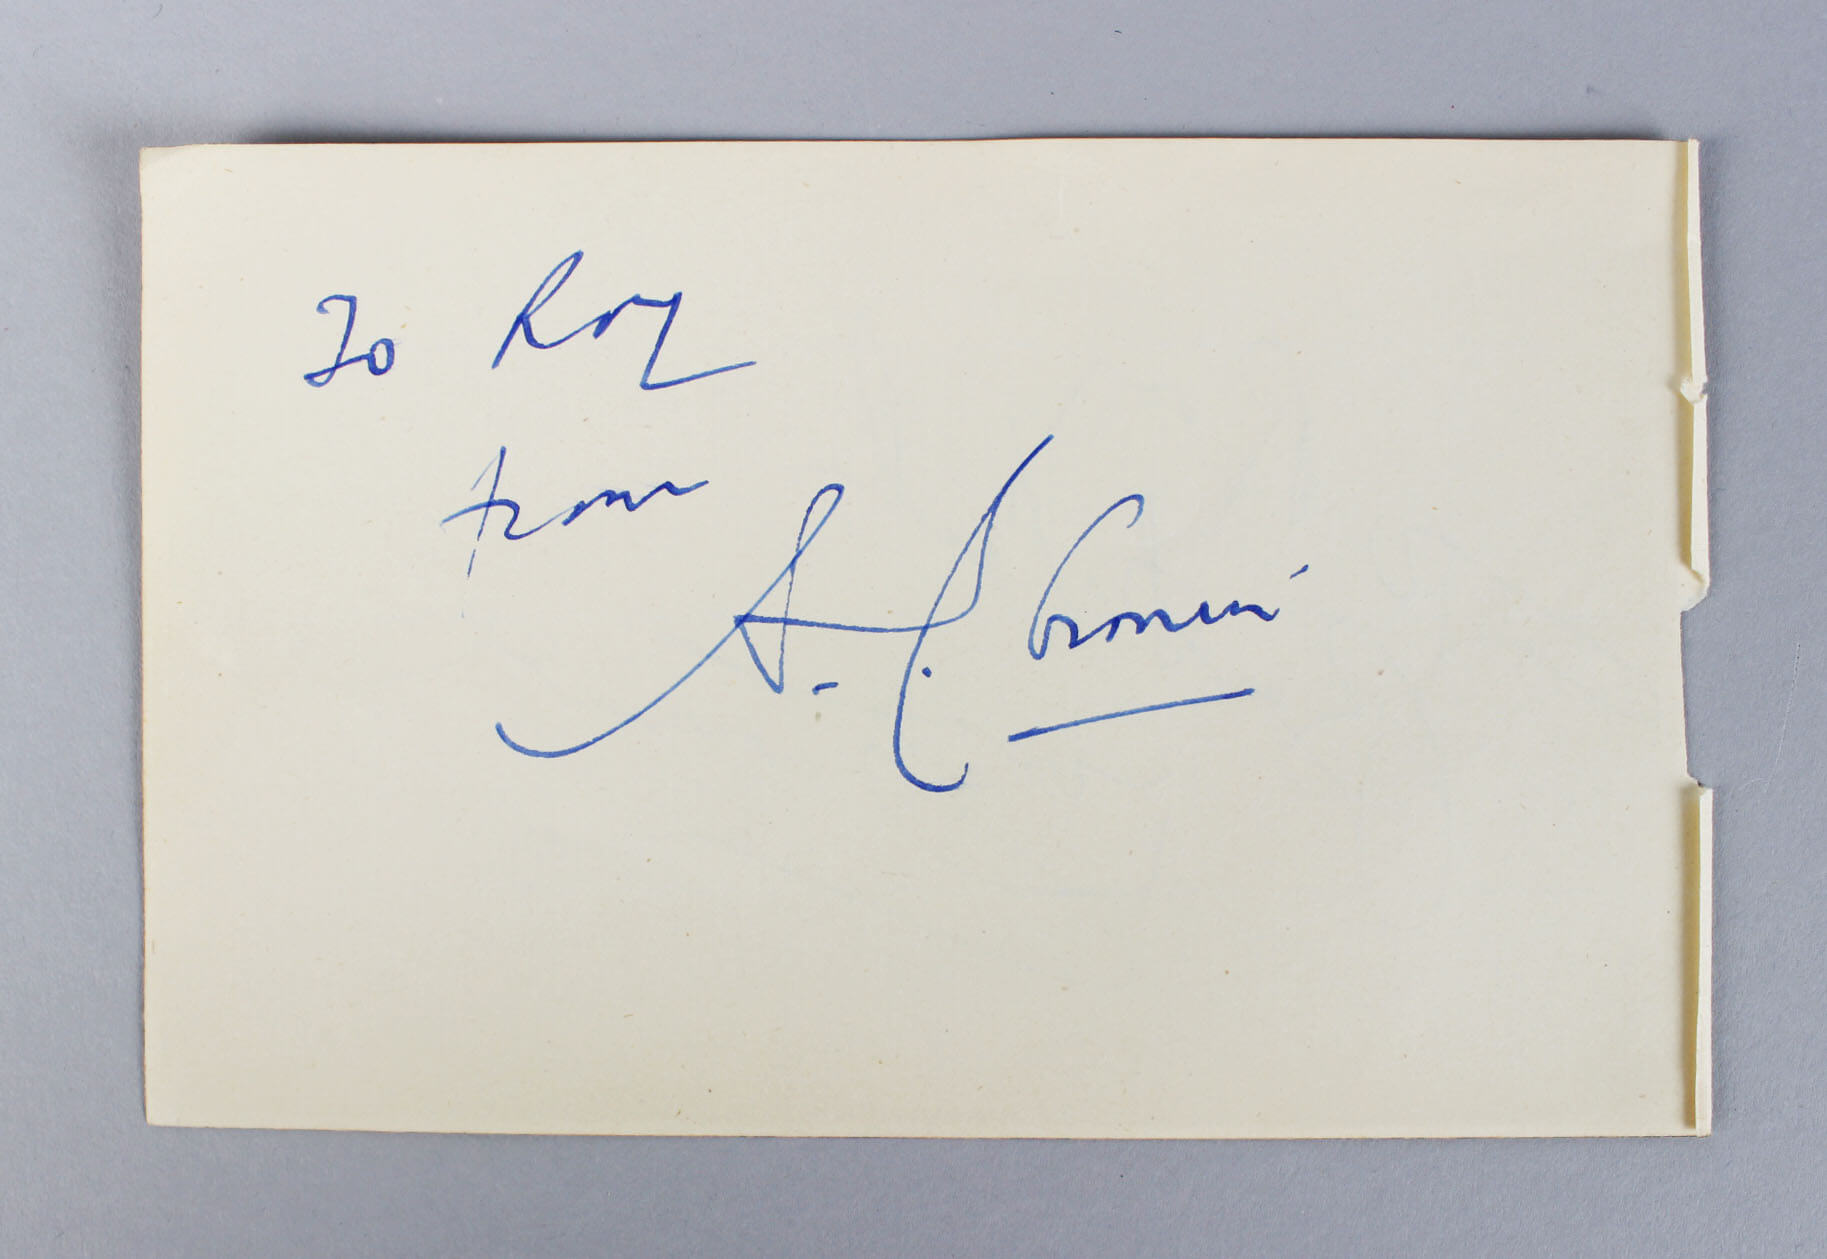 To Roy
from
A. J. Cronin